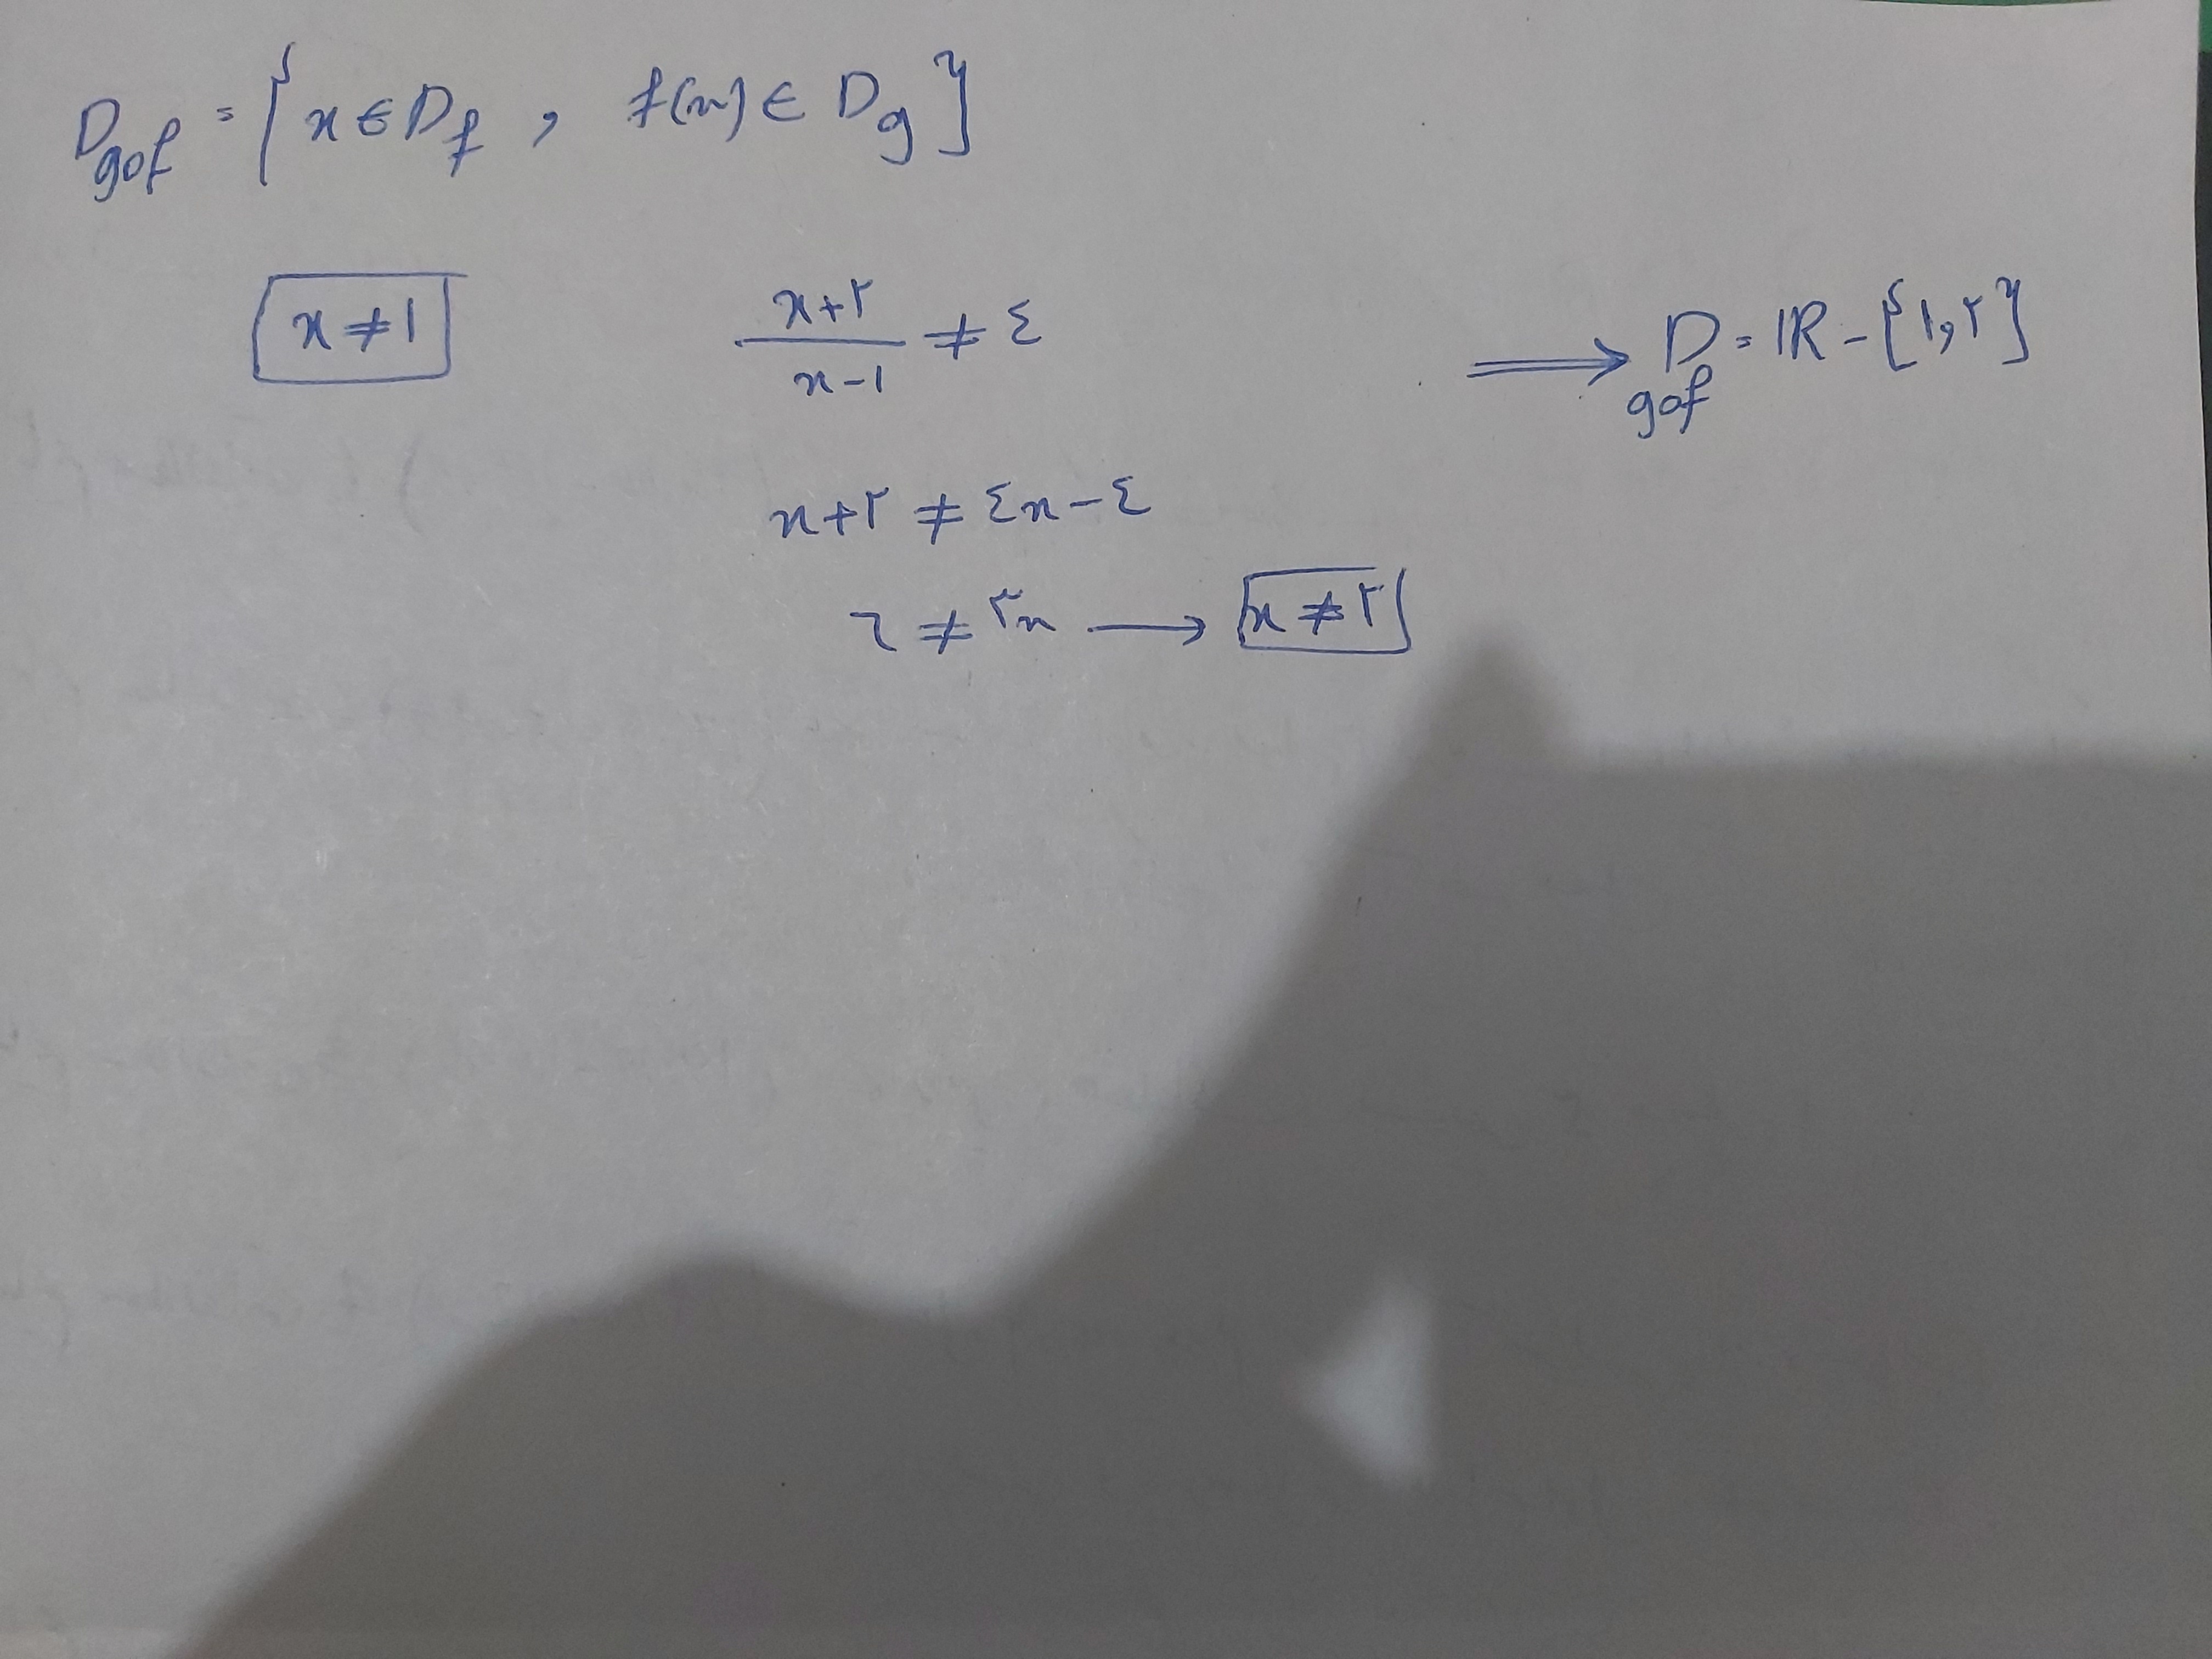 D_gof = {x ∈ D_f , f(x) ∈ D_g}
x ≠ ۱    (x+۲)/(x-۱) ≠ ٤    ⟹ D_gof = ℝ - {۱,۲}
x+۲ ≠ ٤x-٤
۶ ≠ ۳x ⟶ x ≠ ۲